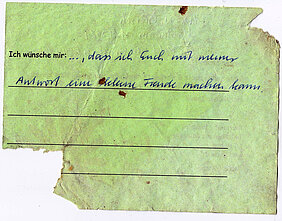 Ich wünsche mir: ..., dass ich Euch mit meiner
Antwort eine kleine Freude machen kann